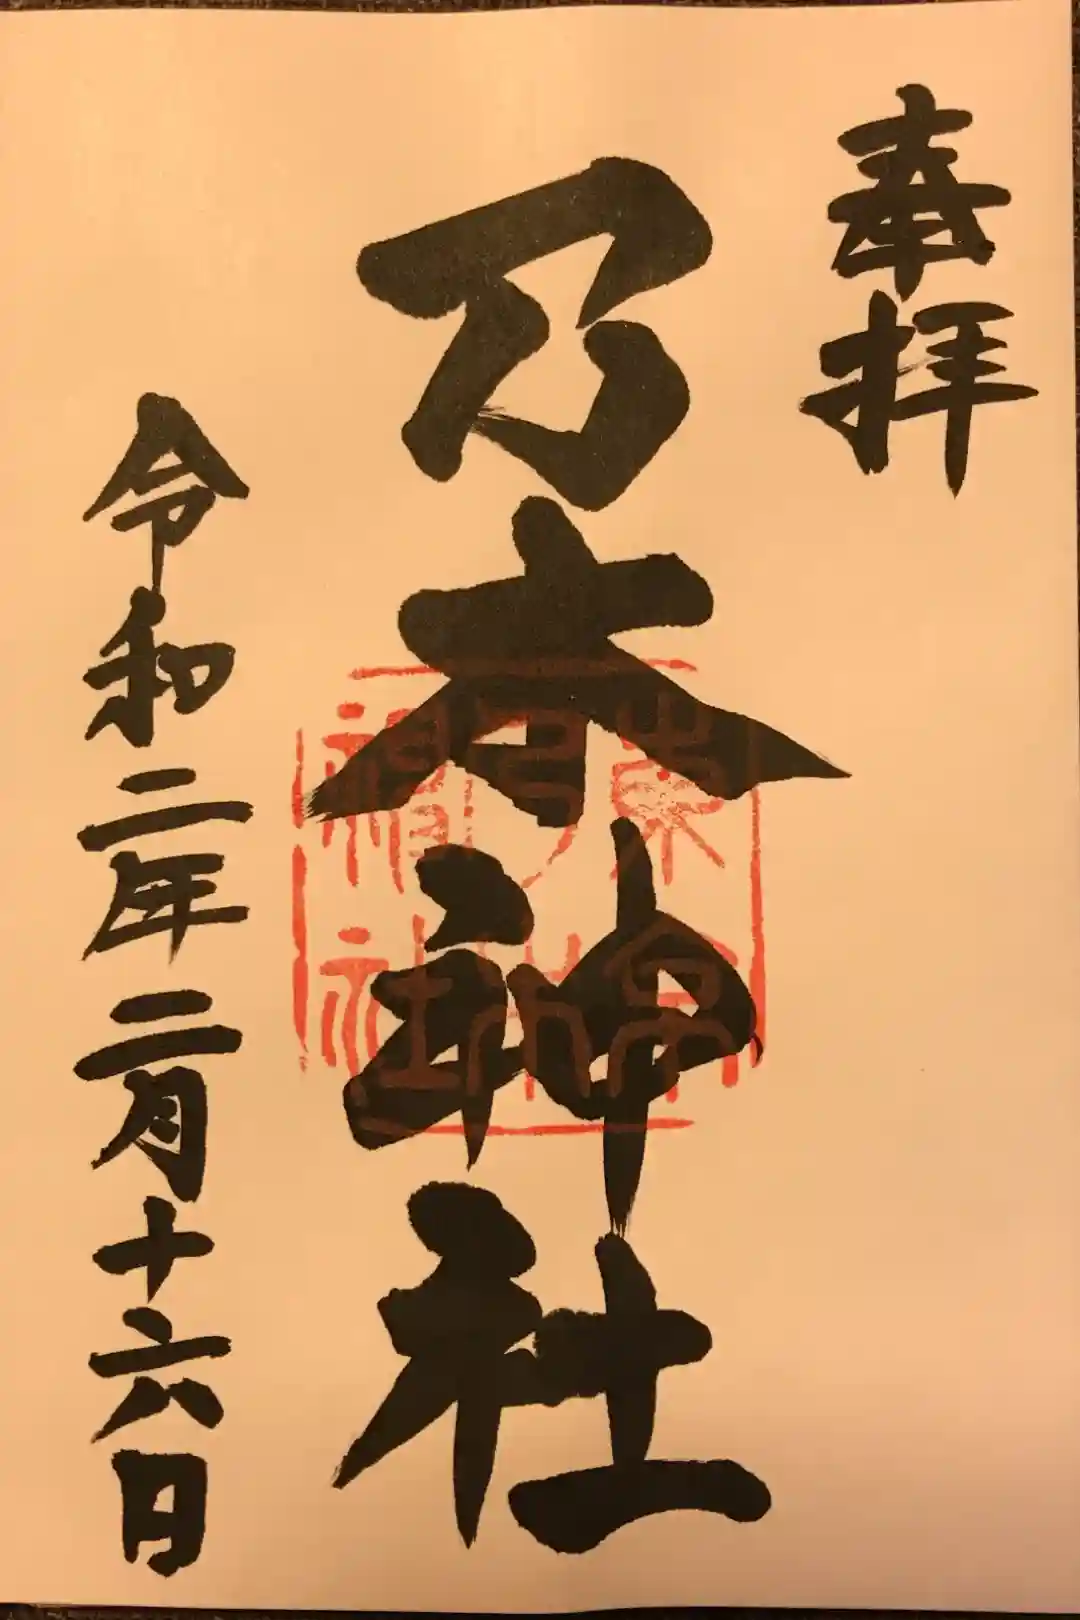 奉拝
乃木神社
令和二年二月十六日